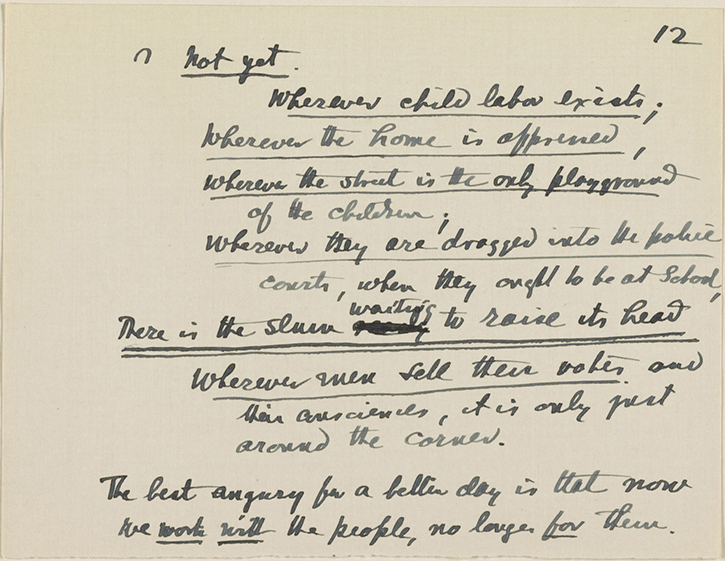 12
Not yet.
Wherever child labor exists;
Wherever the home is oppressed,
Wherever the street is the only playground
of the children;
Wherever they are dragged into the police
courts, when they ought to be at School,
waiting
There is the slum to raise its head
Wherever men sell their votes and
their consciences, it is only just
around the corner.
The best augury for a better day is that now
we work with the people, no longer for them.